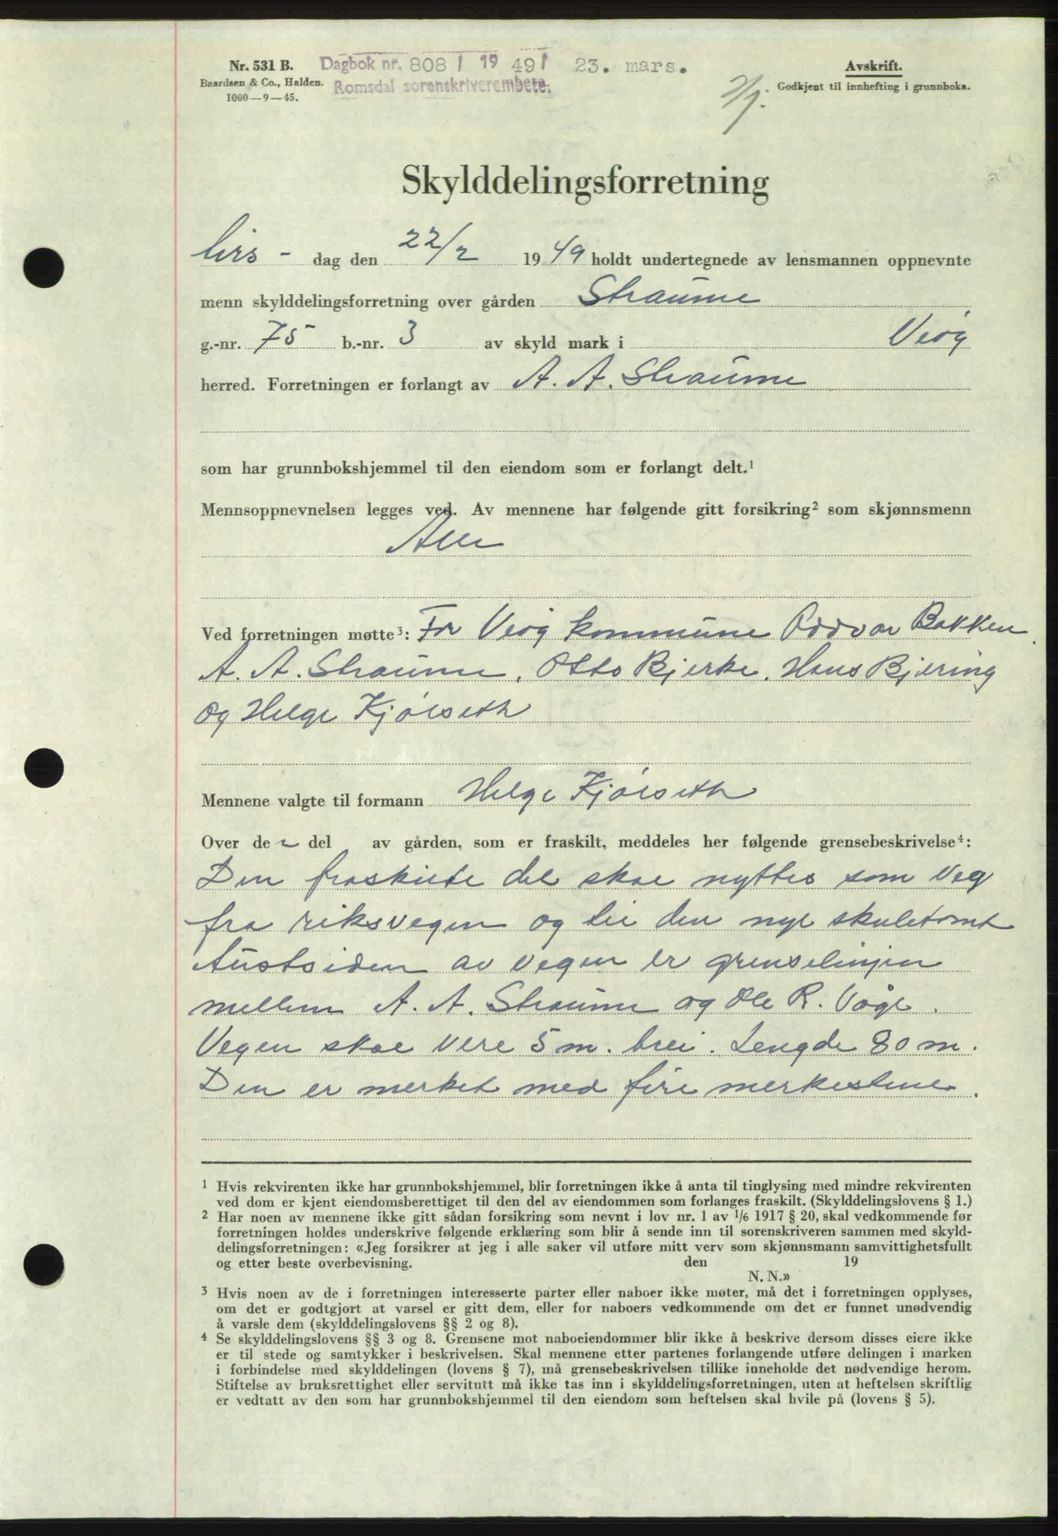 Nr. 531 B.
Baardsen & Co., Halden.
1000—9—45.
Dagbok nr. 808 / 19 49 / 23. mars.
Romsdal sorenskriverembete.
Avskrift.
Godkjent til innhefting i grunnboka.
2/j.
Skylddelingsforretning
tirs - dag den 22/2 1949 holdt undertegnede av lensmannen oppnevnte
menn skylddelingsforretning over gården Straume
g.-nr. 75 b.-nr. 3 av skyld mark i Veøy
herred. Forretningen er forlangt av A. A. Straume
som har grunnbokshjemmel til den eiendom som er forlangt delt.¹
Mennsoppnevnelsen legges ved. Av mennene har følgende gitt forsikring² som skjønnsmenn
Alle
Ved forretningen møtte³: For Veøy kommune Oddvar Bakken.
A. A. Straume, Otto Bjerke, Hans Bjering
og Helge Kjølseth
Mennene valgte til formann Helge Kjølseth
Over de n del av gården, som er fraskilt, meddeles her følgende grensebeskrivelse⁴:
Den fraskilte del skal nyttes som veg
fra riksvegen og til den nye skuletomt
Austsiden av vegen er grenselinjen
mellem A. A. Straume og Ole R. Våge.
Vegen skal vere 5 m. brei. Lengde 80 m.
Den er merket med fire merkesteine.
¹ Hvis rekvirenten ikke har grunnbokshjemmel, blir forretningen ikke å anta til tinglysing med mindre rekvirenten
ved dom er kjent eiendomsberettiget til den del av eiendommen som forlanges fraskilt. (Skylddelingslovens § 1.)
² Har noen av mennene ikke gitt sådan forsikring som nevnt i lov nr. 1 av 1/6 1917 § 20, skal vedkommende før
forretningen holdes underskrive følgende erklæring som blir å sende inn til sorenskriveren sammen med skyld-
delingsforretningen: «Jeg forsikrer at jeg i alle saker vil utføre mitt verv som skjønnsmann samvittighetsfullt
og etter beste overbevisning. den 19
N. N.»
³ Hvis noen av de i forretningen interesserte parter eller naboer ikke møter, må det i forretningen opplyses,
om det er godtgjort at varsel er gitt dem, eller for naboers vedkommende om det er funnet unødvendig
å varsle dem (skylddelingslovens §§ 2 og 8).
⁴ Se skylddelingslovens §§ 3 og 8. Grensene mot naboeiendommer blir ikke å beskrive dersom disses eiere ikke
er til stede og samtykker i beskrivelsen. Skal mennene etter partenes forlangende utføre delingen i marken
i forbindelse med skylddelingen (lovens § 7), må grensebeskrivelsen tillike inneholde det nødvendige herom.
Stiftelse av bruksrettighet eller servitutt må ikke tas inn i skylddelingsforretningen, uten at heftelsen skriftlig
er vedtatt av den som har grunnbokshjemmel til den eiendom som heftelsen skal hvile på (lovens § 5).